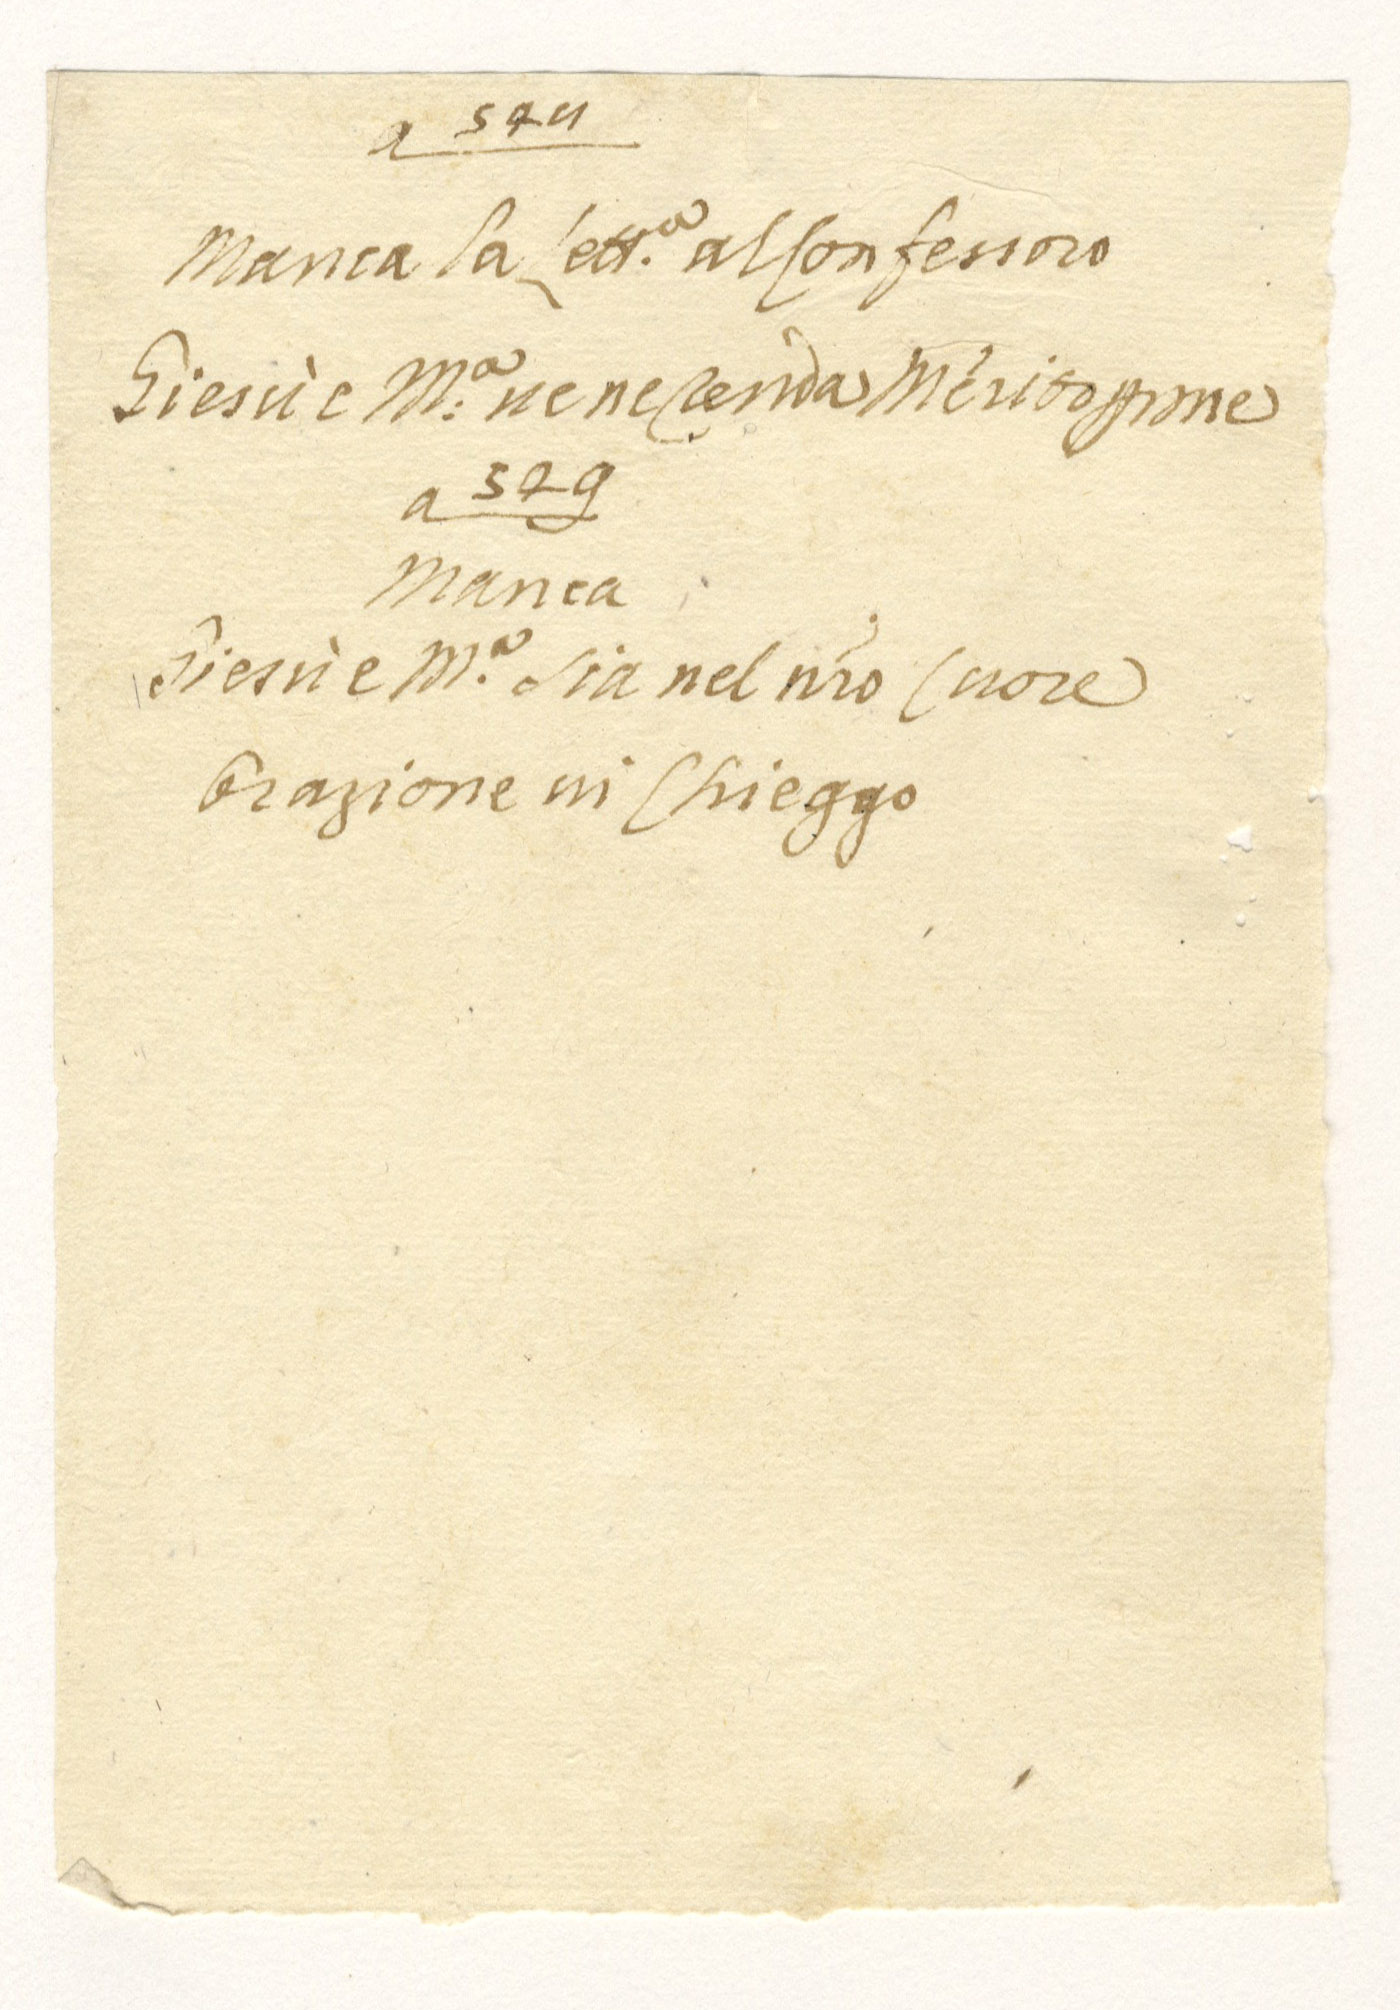 a 524
Manca la lett.ra al Confessoro
Giesù e M.a ue ne renda Merito
a 529
Manca
Giesù e M.a sia nel nro Cuore
Orazione ui Chieggo